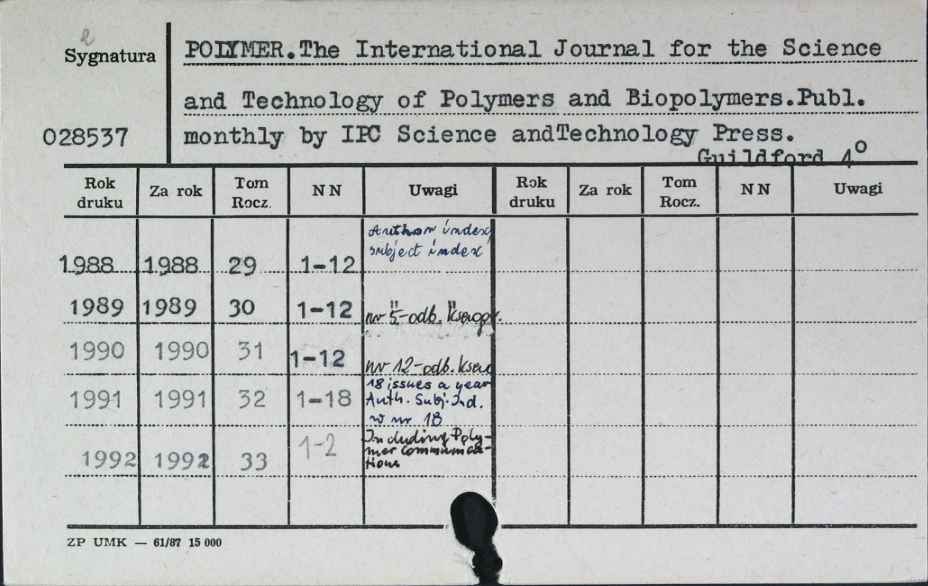 Sygnatura
POLYMER.The International Journal for the Science
and Technology of Polymers and Biopolymers.Publ.
028537
monthly by IPC Science andTechnology Press.
Guildford 4°
Rok druku Za rok Tom Rocz. N N Uwagi Rok druku Za rok Tom Rocz. N N Uwagi
Author index,
subject index
1988 1988 29 1-12
1989 1989 30 1-12 nr 5-odb. kserogr.
1990 1990 31 1-12 nr 12-odb. kser
18 issues a year
1991 1991 32 1-18 Auth. Subj. Ind.
w nr 18
Including Poly-
1992 1992 33 1-2 mer communica-
tions
ZP UMK — 61/87 15 000